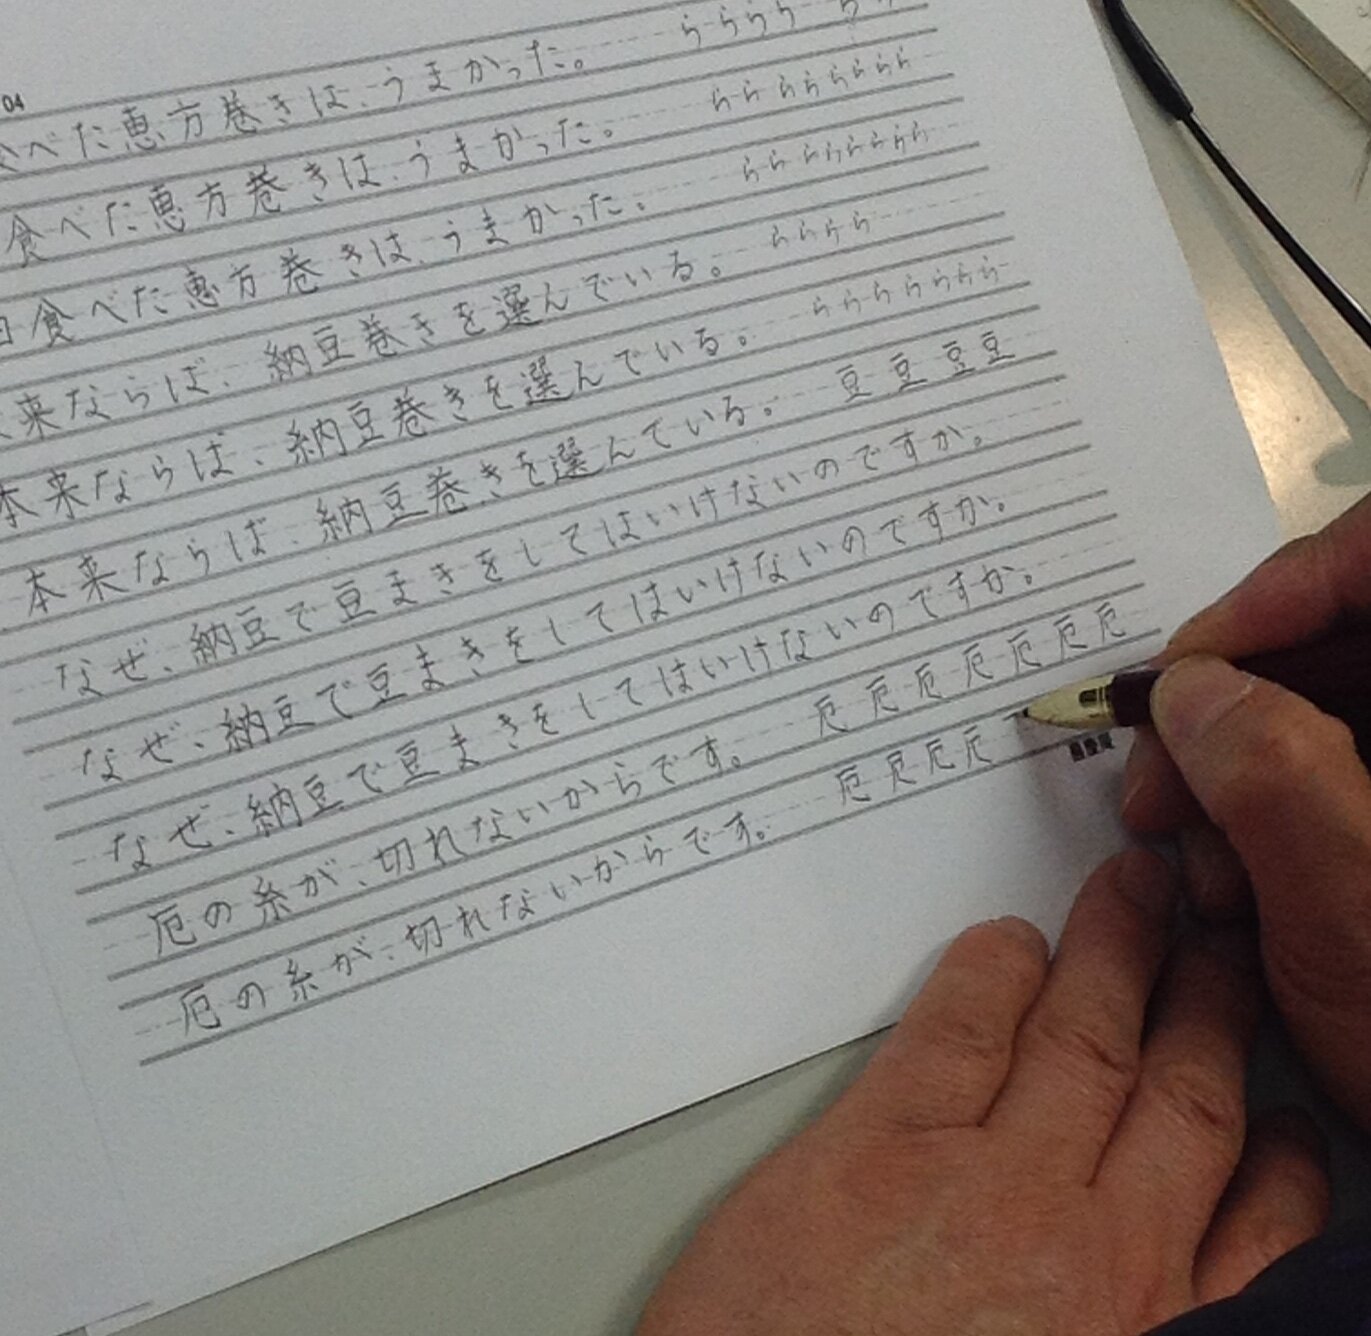 04
食べた恵方巻きは、うまかった。 らららら らら
食べた恵方巻きは、うまかった。 らららららららら
日食べた恵方巻きは、うまかった。 らららららららら
来ならば、納豆巻きを選んでいる。 らららら
本来ならば、納豆巻きを選んでいる。 ららららららら
本来ならば、納豆巻きを選んでいる。 豆豆豆豆
なぜ、納豆で豆まきをしてはいけないのですか。
なぜ、納豆で豆まきをしてはいけないのですか。
なぜ、納豆で豆まきをしてはいけないのですか。
厄の糸が、切れないからです。 厄厄厄厄厄厄厄
厄の糸が、切れないからです。 厄厄厄厄